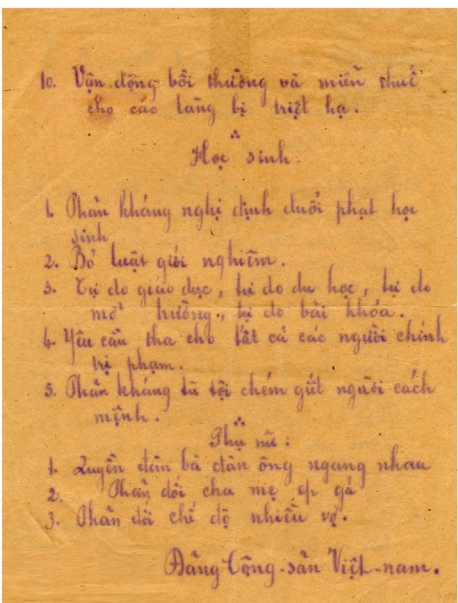 10. Vận động bồi thường và miễn thuế
cho các làng bị triệt hạ.
Học sinh.
1. Phản kháng nghị định đuổi phạt học
sinh
2. Bỏ luật giới nghiêm.
3. Tự do giáo dục, tự do du học, tự do
mở trường, tự do bãi khóa.
4. Yêu cầu tha cho tất cả các người chính
trị phạm.
5. Phản kháng tù tội chém giết người cách
mệnh.
Phụ nữ:
1. Quyền đàn bà đàn ông ngang nhau
2. Phản đối cha mẹ ép gả
3. Phản đối chế độ nhiều vợ.
Đảng Cộng-sản Việt-nam.